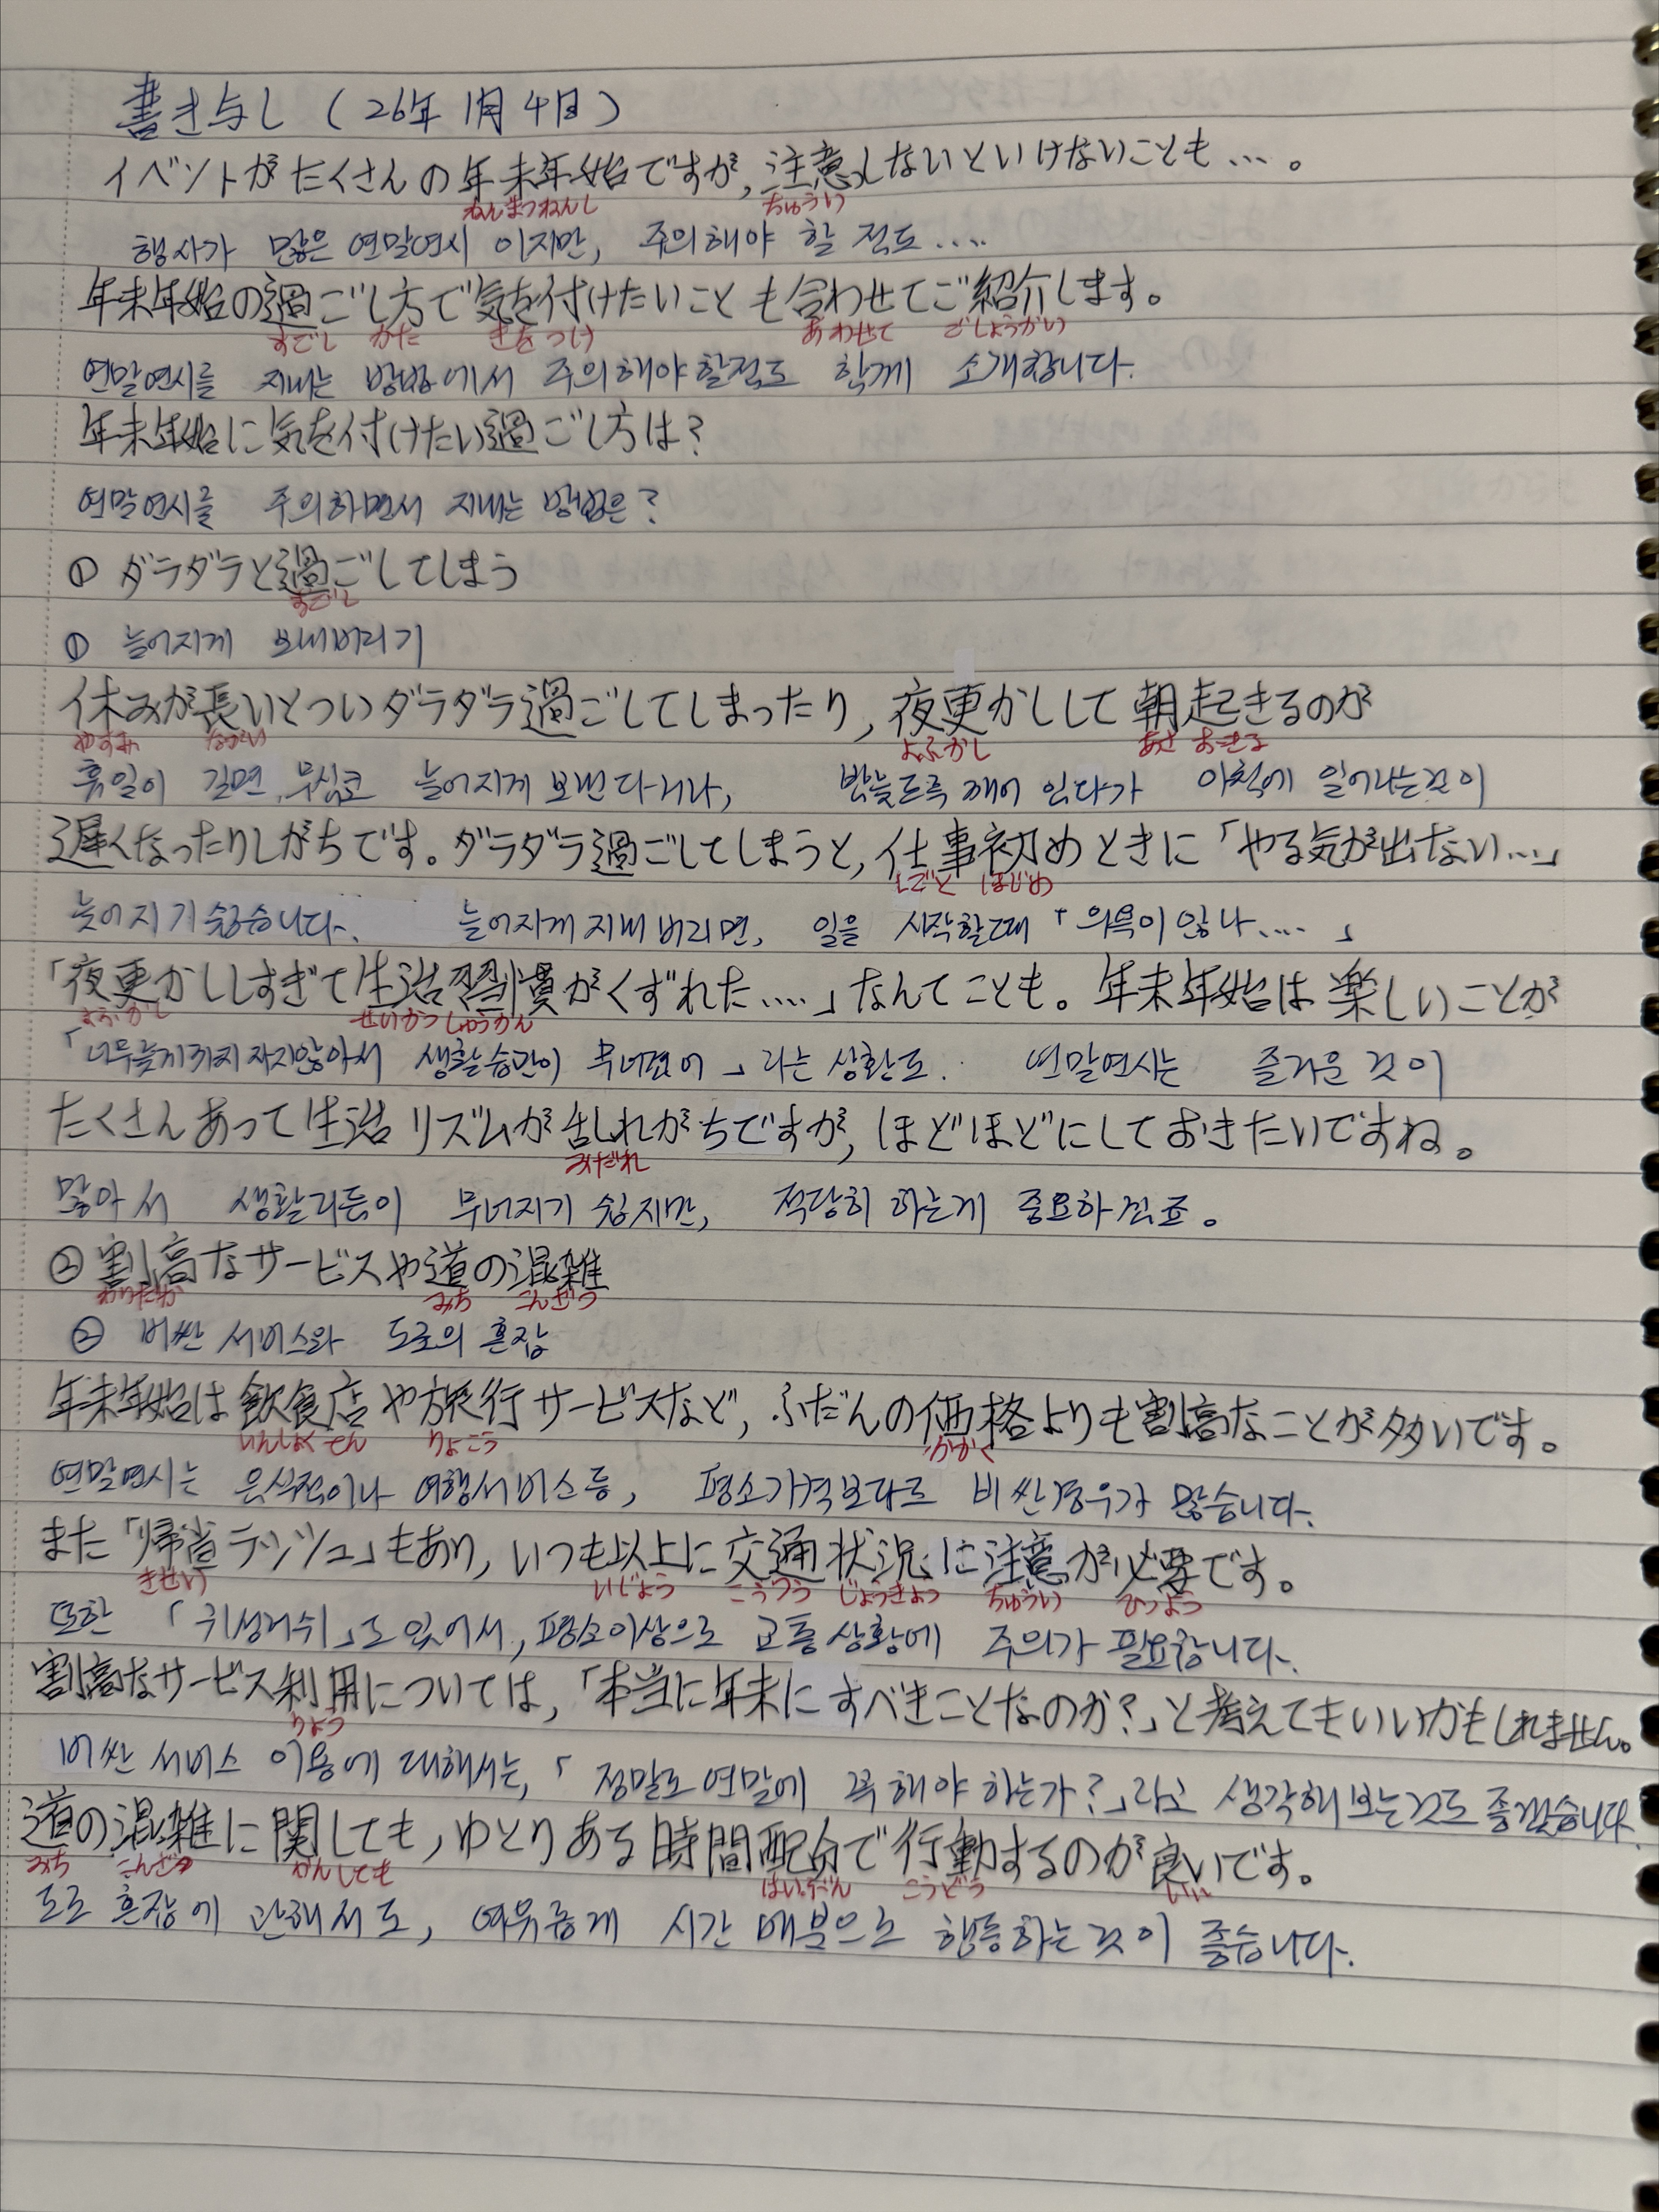 書き与し (26年 1月 4日)
イベントがたくさんの年末年始ですが, 注意しないといけないことも…。
ねんまつねんし ちゅうい
행사가 많은 연말연시 이지만, 주의해야 할 점도 ....
年末年始の過ごし方で気を付けたいことも合わせてご紹介します。
すごし かた きをつけ あわせて ごしょうかい
연말연시를 지내는 방법에서 주의해야할점도 함께 소개합니다.
年末年始に気を付けたい過ごし方は?
연말연시를 주의하면서 지내는 방법은?
① ダラダラと過ごしてしまう
すごし
① 늘어지게 보내버리기
休みが長いとついダラダラ過ごしてしまったり, 夜更かしして朝起きるのが
やすみ ながい よふかし あさ おきる
휴일이 길면, 무심코 늘어지게 보낸다거나, 밤늦도록 깨어 있다가 아침에 일어나는것이
遅くなったりしがちです。ダラダラ過ごしてしまうと, 仕事初めときに「やる気が出ない…」
しごと はじめ
늦어지기 쉽습니다. 늘어지게 지내 버리면, 일을 시작할때 「의욕이 않나....」
「夜更かししすぎて生活習慣がくずれた....」なんてことも。年末年始は楽しいことが
よふかし せいかつしゅうかん
「너무늦게까지 자지않아서 생활습관이 무너졌어」라는 상황도. 연말연시는 즐거운 것이
たくさんあって生活リズムが乱れがちですが, ほどほどにしておきたいですね。
みだれ
많아서 생활리듬이 무너지기 쉽지만, 적당히 하는게 중요하겠죠。
② 割高なサービスや道の混雑
わりだか みち こんざつ
② 비싼 서비스와 도로의 혼잡
年末年始は飲食店や旅行サービスなど, ふだんの価格よりも割高なことが多いです。
いんしょくてん りょこう かかく
연말연시는 음식점이나 여행서비스등, 평소가격보다도 비싼경우가 많습니다.
また「帰省ラッシュ」もあり, いつも以上に交通状況に注意が必要です。
きせい いじょう こうつう じょうきょう ちゅうい ひつよう
또한 「귀성러쉬」도 있어서, 평소이상으로 교통상황에 주의가 필요합니다.
割高なサービス利用については, 「本当に年末にすべきことなのか?」と考えてもいいかもしれません。
りよう
비싼 서비스 이용에 대해서는, 「정말로 연말에 꼭 해야 하는가?」라고 생각해 보는것도 좋겠습니다.
道の混雑に関しても, ゆとりある時間配分で行動するのが良いです。
みち こんざつ かんしても はいぶん こうどう いい
도로 혼잡에 관해서도, 여유롭게 시간 배분으로 행동하는 것이 좋습니다.